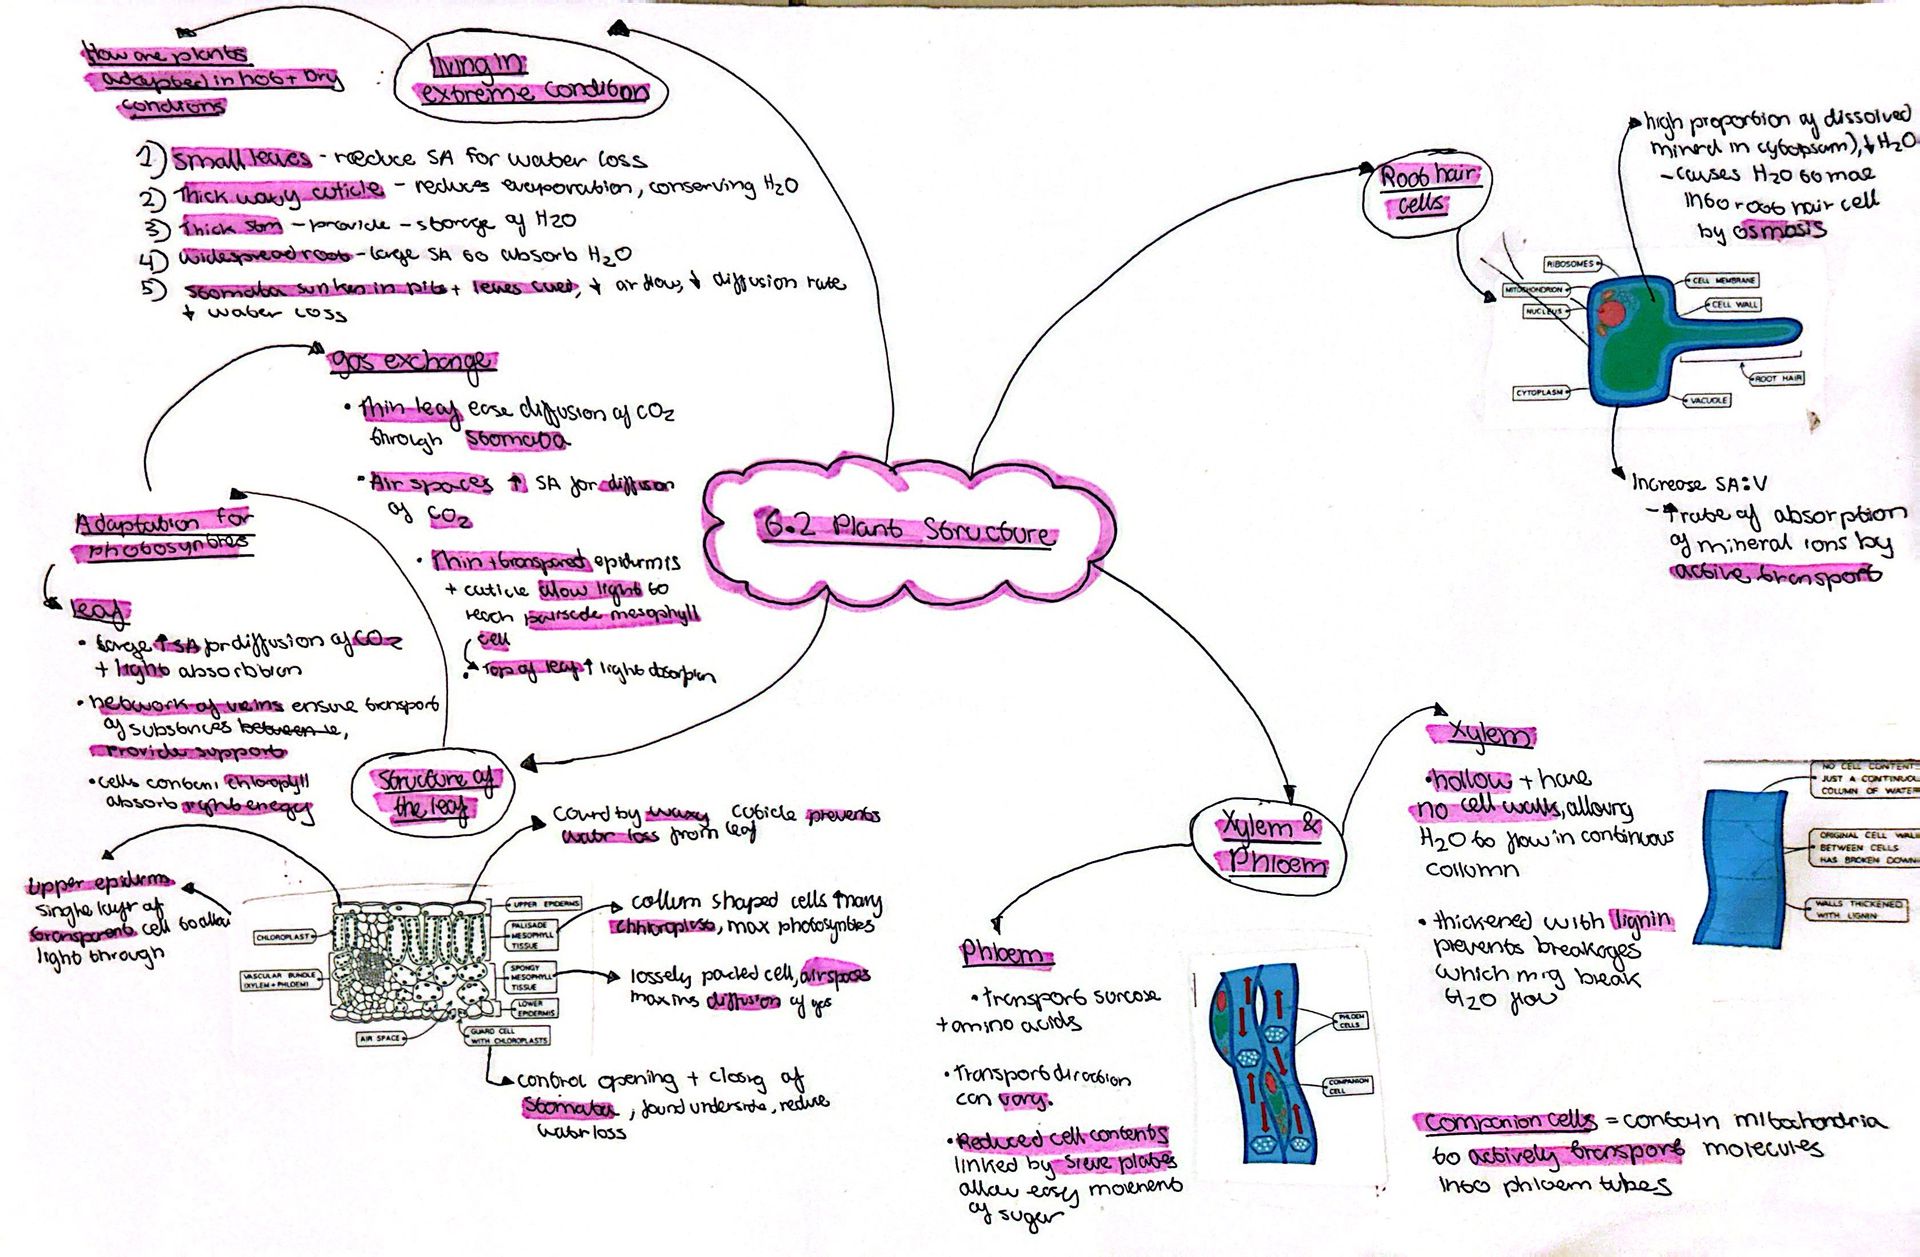 6.2 Plant Structure
living in
extreme condition
How are plants
adapted in hot + Dry
condtions
1) Small leaves - reduce SA for water loss
2) Thick waxy cuticle - reduces evaporation, conserving H2O
3) Thick stem - provide - storage of H2O
4) widespread root - large SA to absorb H2O
5) stomata sunken in pits + leaves cured, ↓ air flow, ↓ diffusion rate
↓ water loss
gas exchange
• Thin leaf ease diffusion of CO2
through stomata
• Air spaces ↑ SA for diffusion
of CO2
• Thin + transparent epidermis
+ cuticle allow light to
reach palisade mesophyll
cell
• Top of leaf ↑ light absorption
Adaptation for
photosynthes
leaf
• large ↑ SA for diffusion of CO2
+ light absorbtion
• network of veins ensure transport
of substances between le,
Provide support
• cells contain chlorophyll
absorb light energy
Structure of
the leaf
Coverd by waxy cuticle prevents
water loss from leaf
Upper epiderm
single layer of
transparent cell to allow
light through
collum shaped cells ↑ many
chhloroplast, max photosynthes
lossely packed cell, air spaces
maxims diffusion of gas
control opening + closing of
stomata, found underside, reduce
water loss
CHLOROPLAST
VASCULAR BUNDLE
(XYLEM + PHLOEM)
AIR SPACE
UPPER EPIDERMIS
PALISADE
MESOPHYLL
TISSUE
SPONGY
MESOPHYLL
TISSUE
LOWER
EPIDERMIS
GUARD CELL
WITH CHLOROPLASTS
Root hair
cells
high proportion of dissolved
minerl in cytoplsam), ↓ H2O
- causes H2O to move
into root hair cell
by osmosis
RIBOSOMES
MITOCHONDRION
NUCLEUS
CYTOPLASM
CELL MEMBRANE
CELL WALL
ROOT HAIR
VACUOLE
Increase SA:V
- ↑ rate of absorption
of mineral ions by
active transport
Xylem &
Phloem
Xylem
• hollow + have
no cell walls, allowing
H2O to flow in continuous
collumn
• thickened with lignin
prevents breakages
which mig break
H2O flow
NO CELL CONTENTS
JUST A CONTINUOU
COLUMN OF WATER
ORIGINAL CELL WALL
BETWEEN CELLS
HAS BROKEN DOWN
WALLS THICKENED
WITH LIGNIN
Phloem
• transport surcose
+ amino acids
• Transport direction
can vary.
• Reduced cell contents
linked by sieve plates
allow easy movement
of sugar
PHLOEM
CELLS
COMPANION
CELL
companion cells = contain mitochondria
to actively transport molecules
into phloem tubes